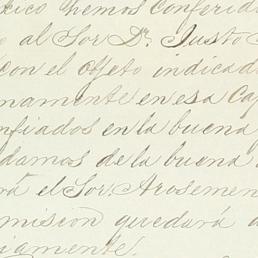 xico hemos conferid
o al Sor Dr. Justo
con el objeto indicad
namente en esa Cap
nfiados en la buena
damos de la buena
rá el Sor. Arosemen
mision quedará
iamente.